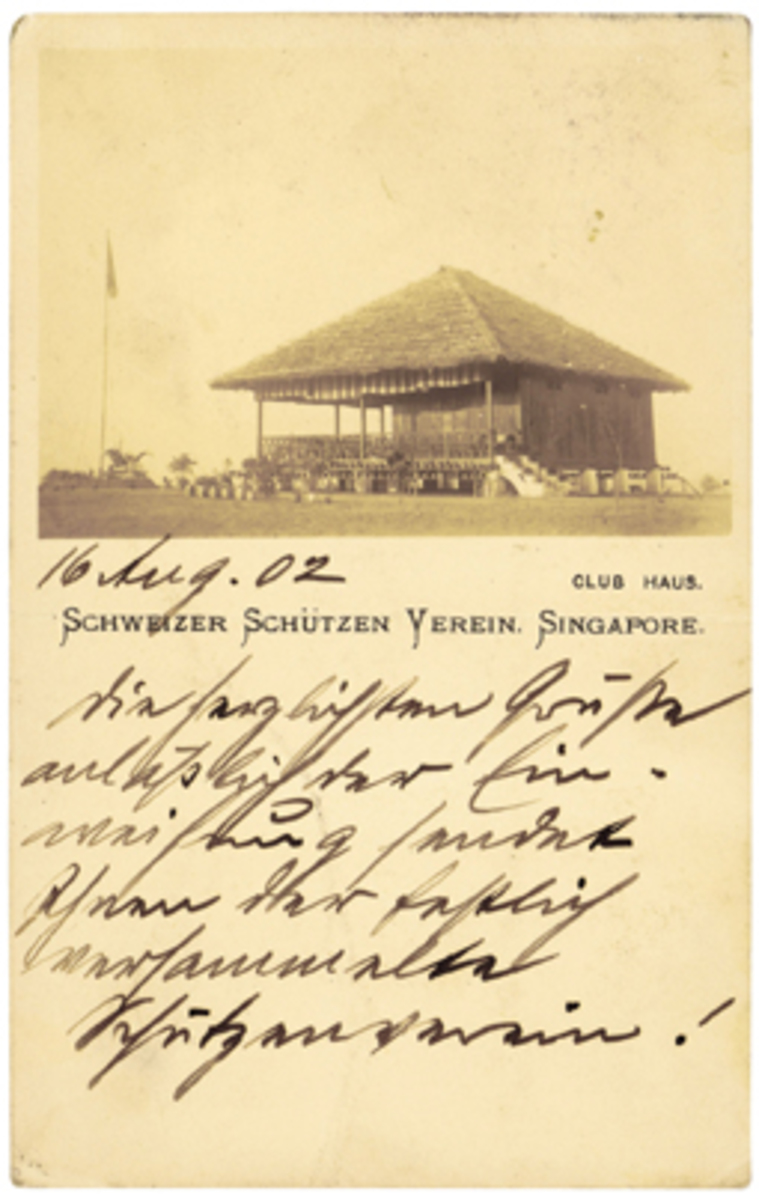 16 Aug. 02
CLUB HAUS.
SCHWEIZER SCHÜTZEN VEREIN. SINGAPORE.
Die herzlichsten Grüße
anläßlich der Ein-
weihung sendet
Ihnen der festlich
versammelte
Schützenverein!